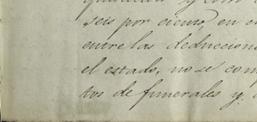 seis por ciento, en e
entre las deduccione
el estado, no se com
tos de funerales y